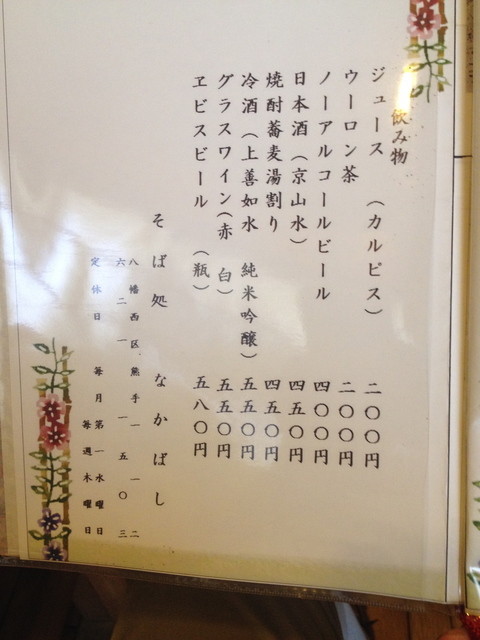 飲み物
ジュース （カルピス） 二〇〇円
ウーロン茶 二〇〇円
ノーアルコールビール 四〇〇円
日本酒（京山水） 四五〇円
焼酎蕎麦湯割り 四五〇円
冷酒（上善如水 純米吟醸） 五五〇円
グラスワイン（赤 白） 五五〇円
ヱビスビール （瓶） 五八〇円
そば処 なかばし
八幡西区熊手一 一 二
六二一 一 五〇三
定休日 毎月第一水曜日
毎週木曜日